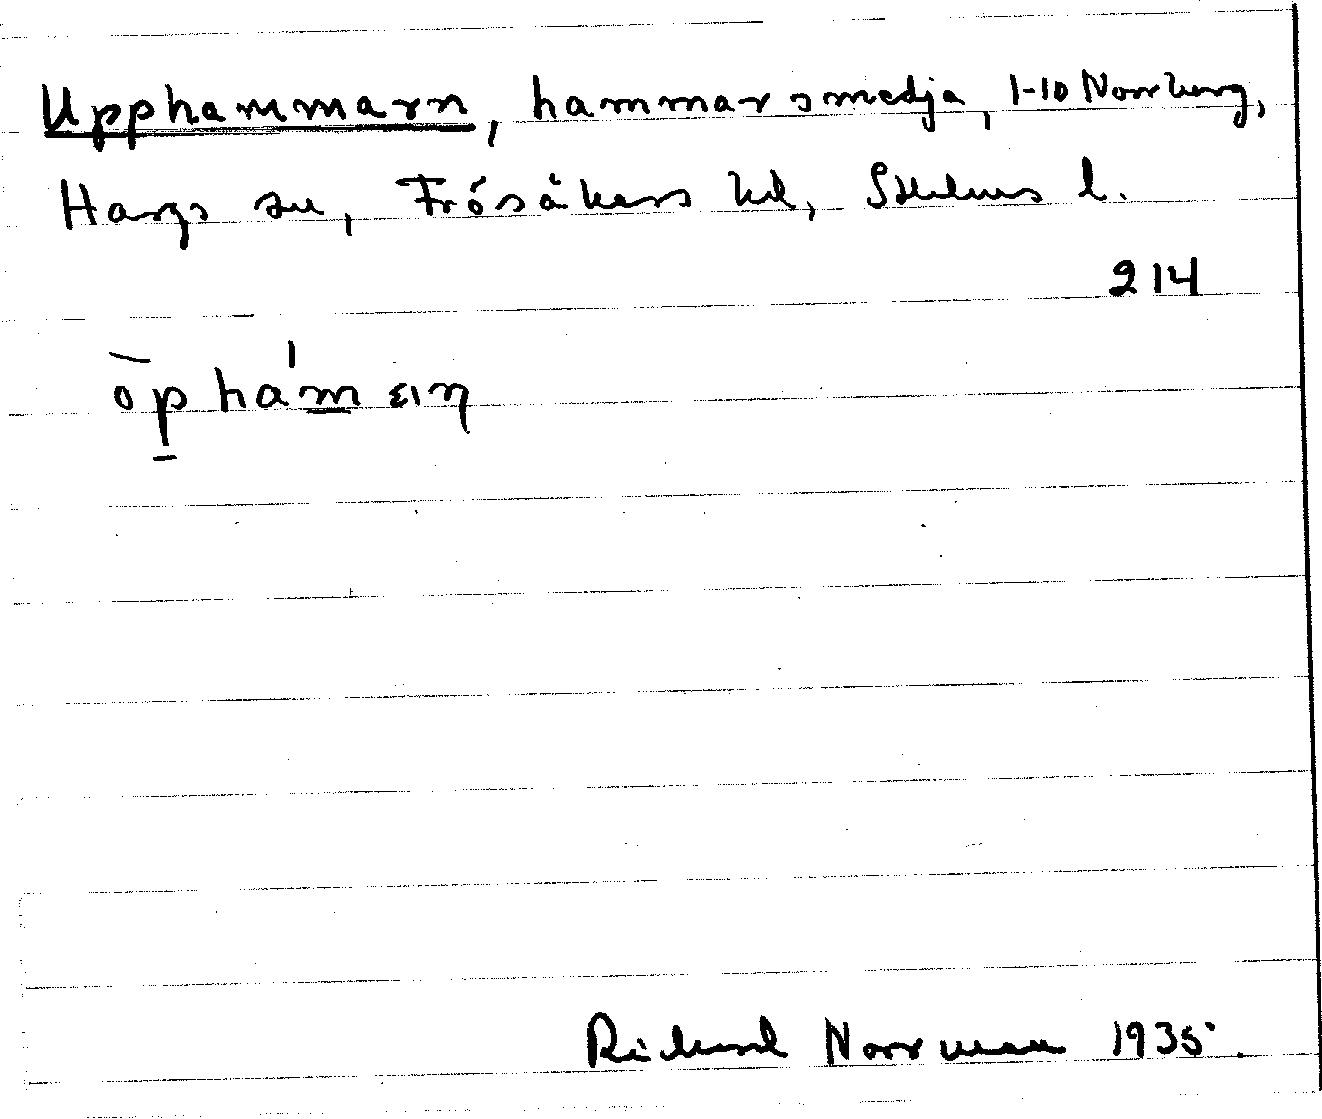 Upphammarn, hammarsmedja, 1-10 Norrberg,
Hargs sn, Frösåkers hd, Sthlms l.
214
òp há'm ın
Rickard Norrman 1935.